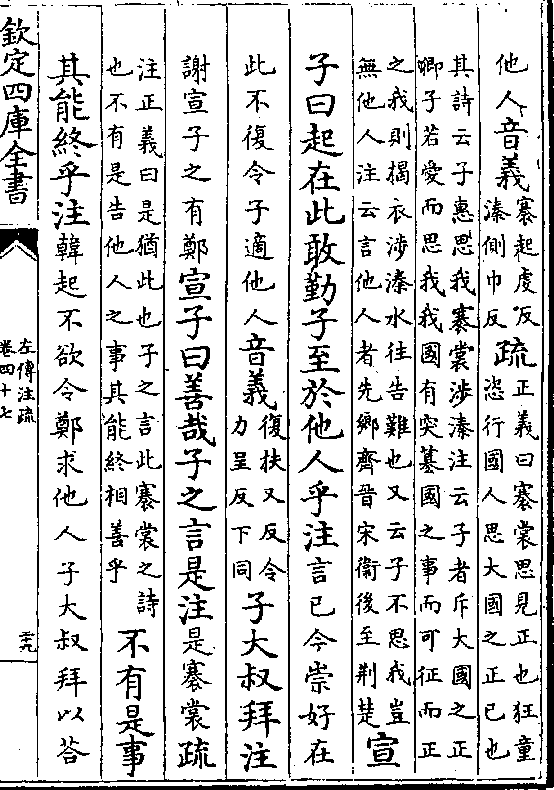 他人音義褰起虔反
溱側巾反疏正義曰褰裳思見正也狂童
恣行國人思大國之正己也
其詩云子惠思我褰裳涉溱注云子者斥大國之正
卿子若愛而思我我國有突簒國之事而可征而正
之我則揭衣涉溱水往告難也又云子不思我豈
無他人注云言他人者先鄉齊晉宋衞後至荆楚宣
子曰起在此敢勤子至於他人乎注言己今崇好在
此不復令子適他人音義復扶又反令
力呈反下同子大叔拜注
謝宣子之有鄭宣子曰善哉子之言是注是褰裳疏
注正義曰是猶此也子之言此褰裳之詩
也不有是告他人之事其能終相善乎不有是事
其能終乎注韓起不欲令鄭求他人子大叔拜以荅
欽定四庫全書
左傳注疏
卷四十七
二十九